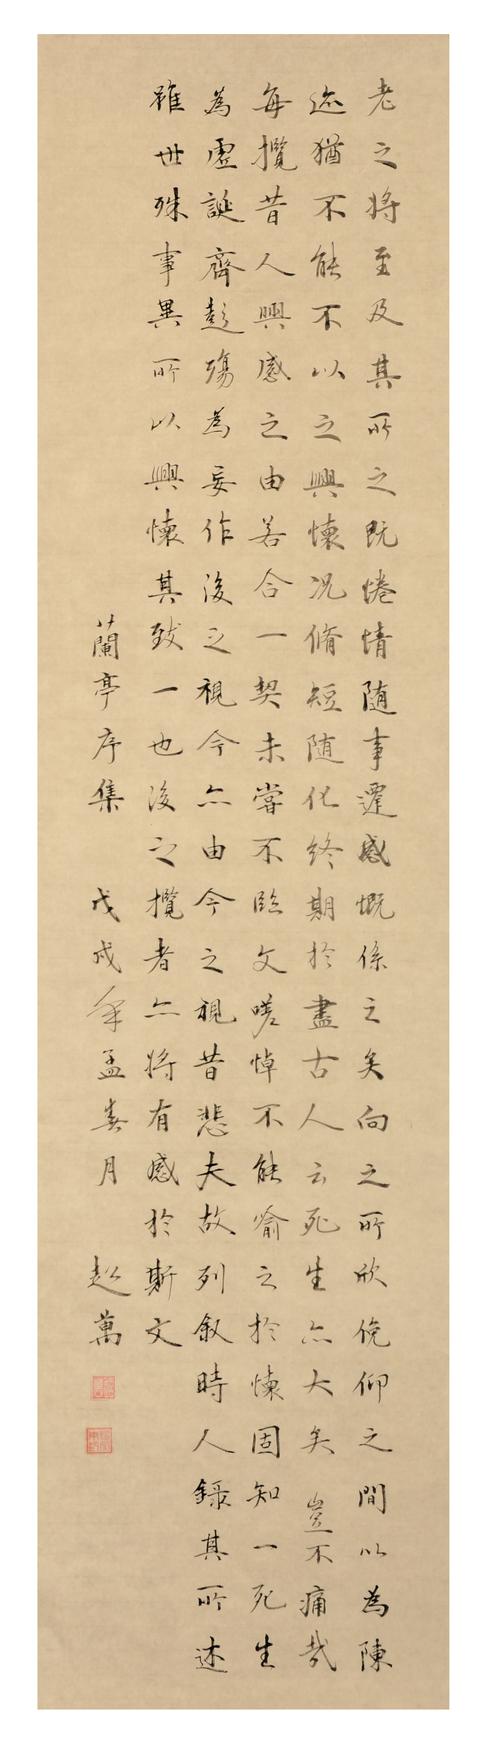 老之将至及其所之既惓情随事遷感慨係之矣向之所欣俛仰之間以為陳
迹猶不能不以之興懷况脩短随化終期於盡古人云死生亦大矣豈不痛哉
每攬昔人興感之由若合一契未嘗不臨文嗟悼不能喻之於懐固知一死生
為虛誕齊彭殤為妄作後之視今亦由今之視昔悲夫故列叙時人録其所述
雖世殊事異所以興懷其致一也後之攬者亦将有感於斯文
蘭亭序集 戊戌年孟春月 赵萬